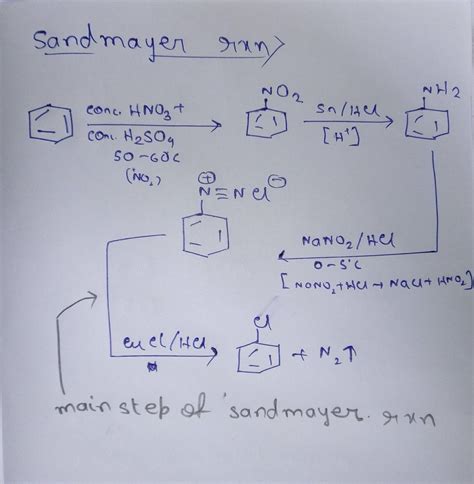 Sandmayer rxn
conc. HNO3 +
conc. H2SO4
50-60°C
(NO2)
NO2
Sn/HCl
[H+]
NH2
NaNO2/HCl
0-5°C
[NONO2+HCl → NaCl + HNO2]
⊕
N≡N Cl⊖
CuCl/HCl
Cl
+ N2↑
main step of sandmayer. rxn